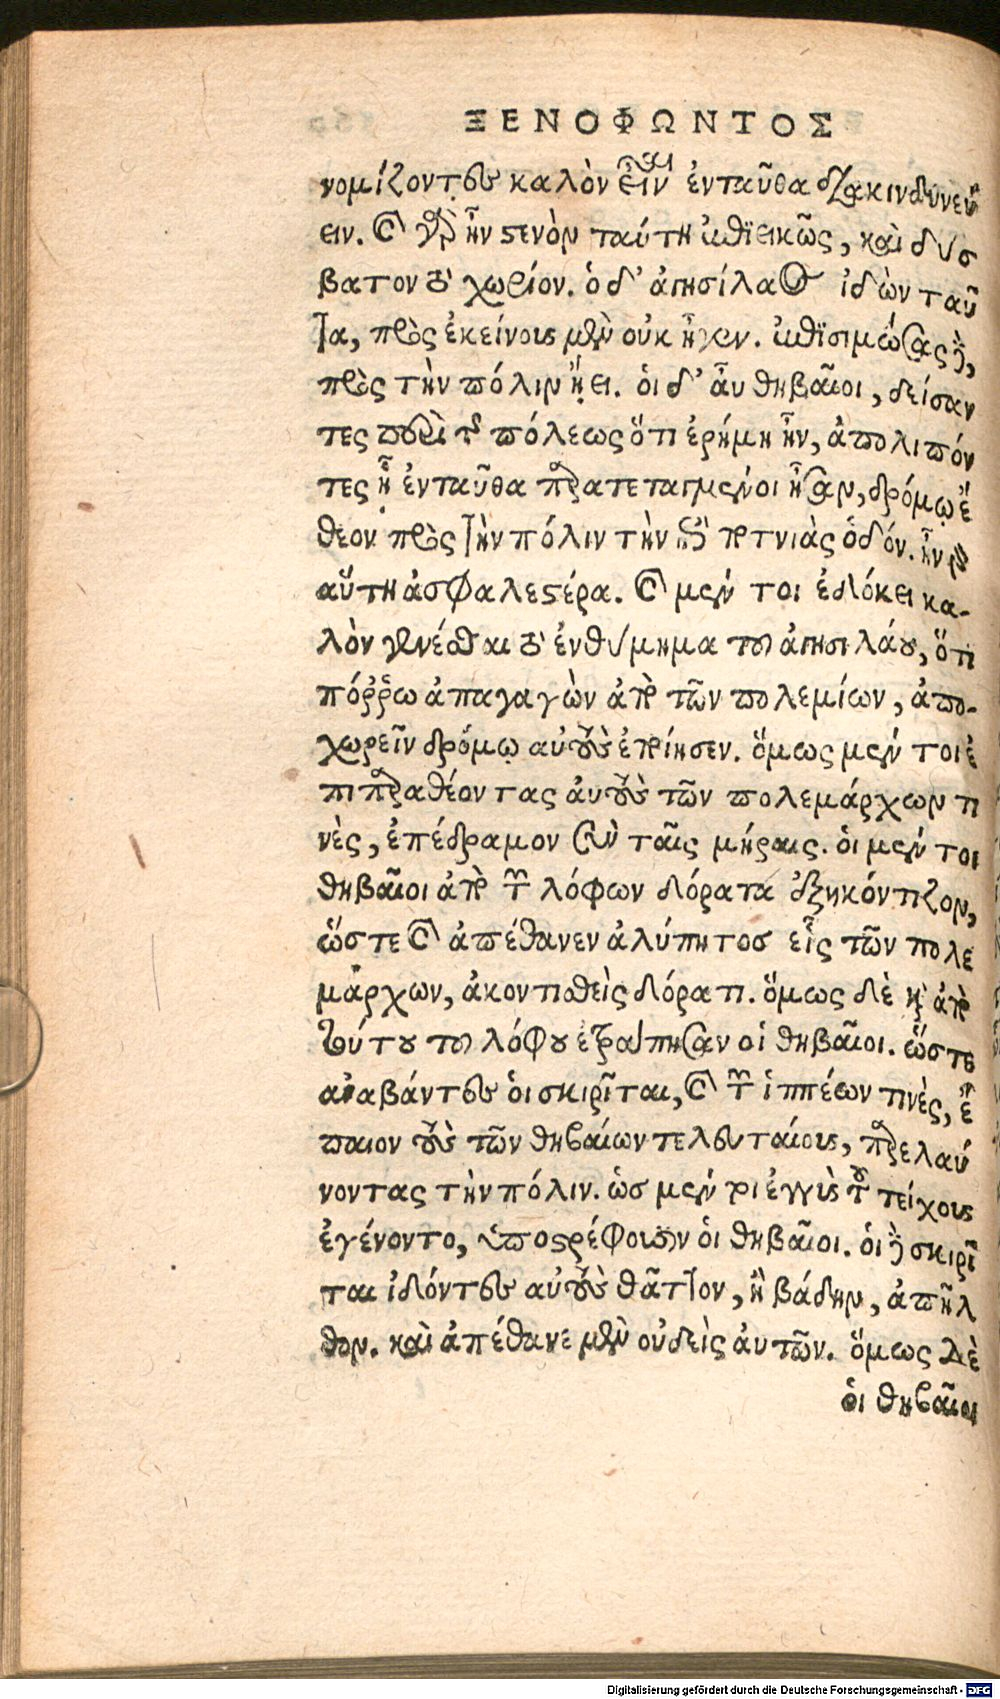 ΞΕΝΟΦΩΝΤΟΣ
νομίζοντες καλὸν εἶναι ἐνταῦθα διακινδυνεύ
ειν. καὶ γὰρ ἦν στενὸν ταύτῃ ἐπιεικῶς, καὶ δυσ
βατον τὸ χωρίον. ὁ δ' ἀγησίλαος ἰδὼν ταῦ
τα, πρὸς ἐκείνους μὲν οὐκ ἦγεν. ἐπισιμώσας δὲ,
πρὸς τὴν πόλιν ᾔει. οἱ δ' αὖ θηβαῖοι, δείσαν
τες περὶ τῆς πόλεως ὅτι ἐρήμη ἦν, ἀπολιπόν
τες ᾗ ἐνταῦθα παρατεταγμένοι ἦσαν, δρόμῳ ἔ
θεον πρὸς τὴν πόλιν τὴν ἐπὶ ποτνιὰς ὁδόν. ἦν γὰρ
αὕτη ἀσφαλεστέρα. καὶ μέν τοι ἐδόκει κα-
λὸν γενέσθαι τὸ ἐνθύμημα τοῦ ἀγησιλάου, ὅτι
πόῤῥω ἀπαγαγὼν ἀπὸ τῶν πολεμίων, ἀπο-
χωρεῖν δρόμῳ αὐτοὺς ἐποίησεν. ὅμως μέν τοι ἐ
πιπαραθέοντας αὐτοὺς τῶν πολεμάρχων τι
νὲς, ἐπέδραμον σὺν ταῖς μόραις. οἱ μέν τοι
θηβαῖοι ἀπὸ τῶν λόφων δόρατα ἐξηκόντιζον,
ὥστε καὶ ἀπέθανεν ἀλύπητος εἷς τῶν πολε
μάρχων, ἀκοντισθεὶς δόρατι. ὅμως δὲ καὶ ἀπὸ
τούτου τοῦ λόφου ἐτράπησαν οἱ θηβαῖοι. ὥστε
ἀναβάντες οἱ σκιρῖται, καὶ τῶν ἱππέων τινὲς, ἔ
παιον τοὺς τῶν θηβαίων τελευταίους, παρελαύ
νοντας τὴν πόλιν. ὡς μέν τοι ἐγγὺς τοῦ τείχους
ἐγένοντο, ὑποστρέφουσιν οἱ θηβαῖοι. οἱ δὲ σκιρῖ
ται ἰδόντες αὐτοὺς θᾶττον, ἢ βάδην, ἀπῆλ
θον. καὶ ἀπέθανε μὲν οὐδεὶς αὐτῶν. ὅμως δὲ
οἱ θηβαῖοι
Digitalisierung gefördert durch die Deutsche Forschungsgemeinschaft - DFG